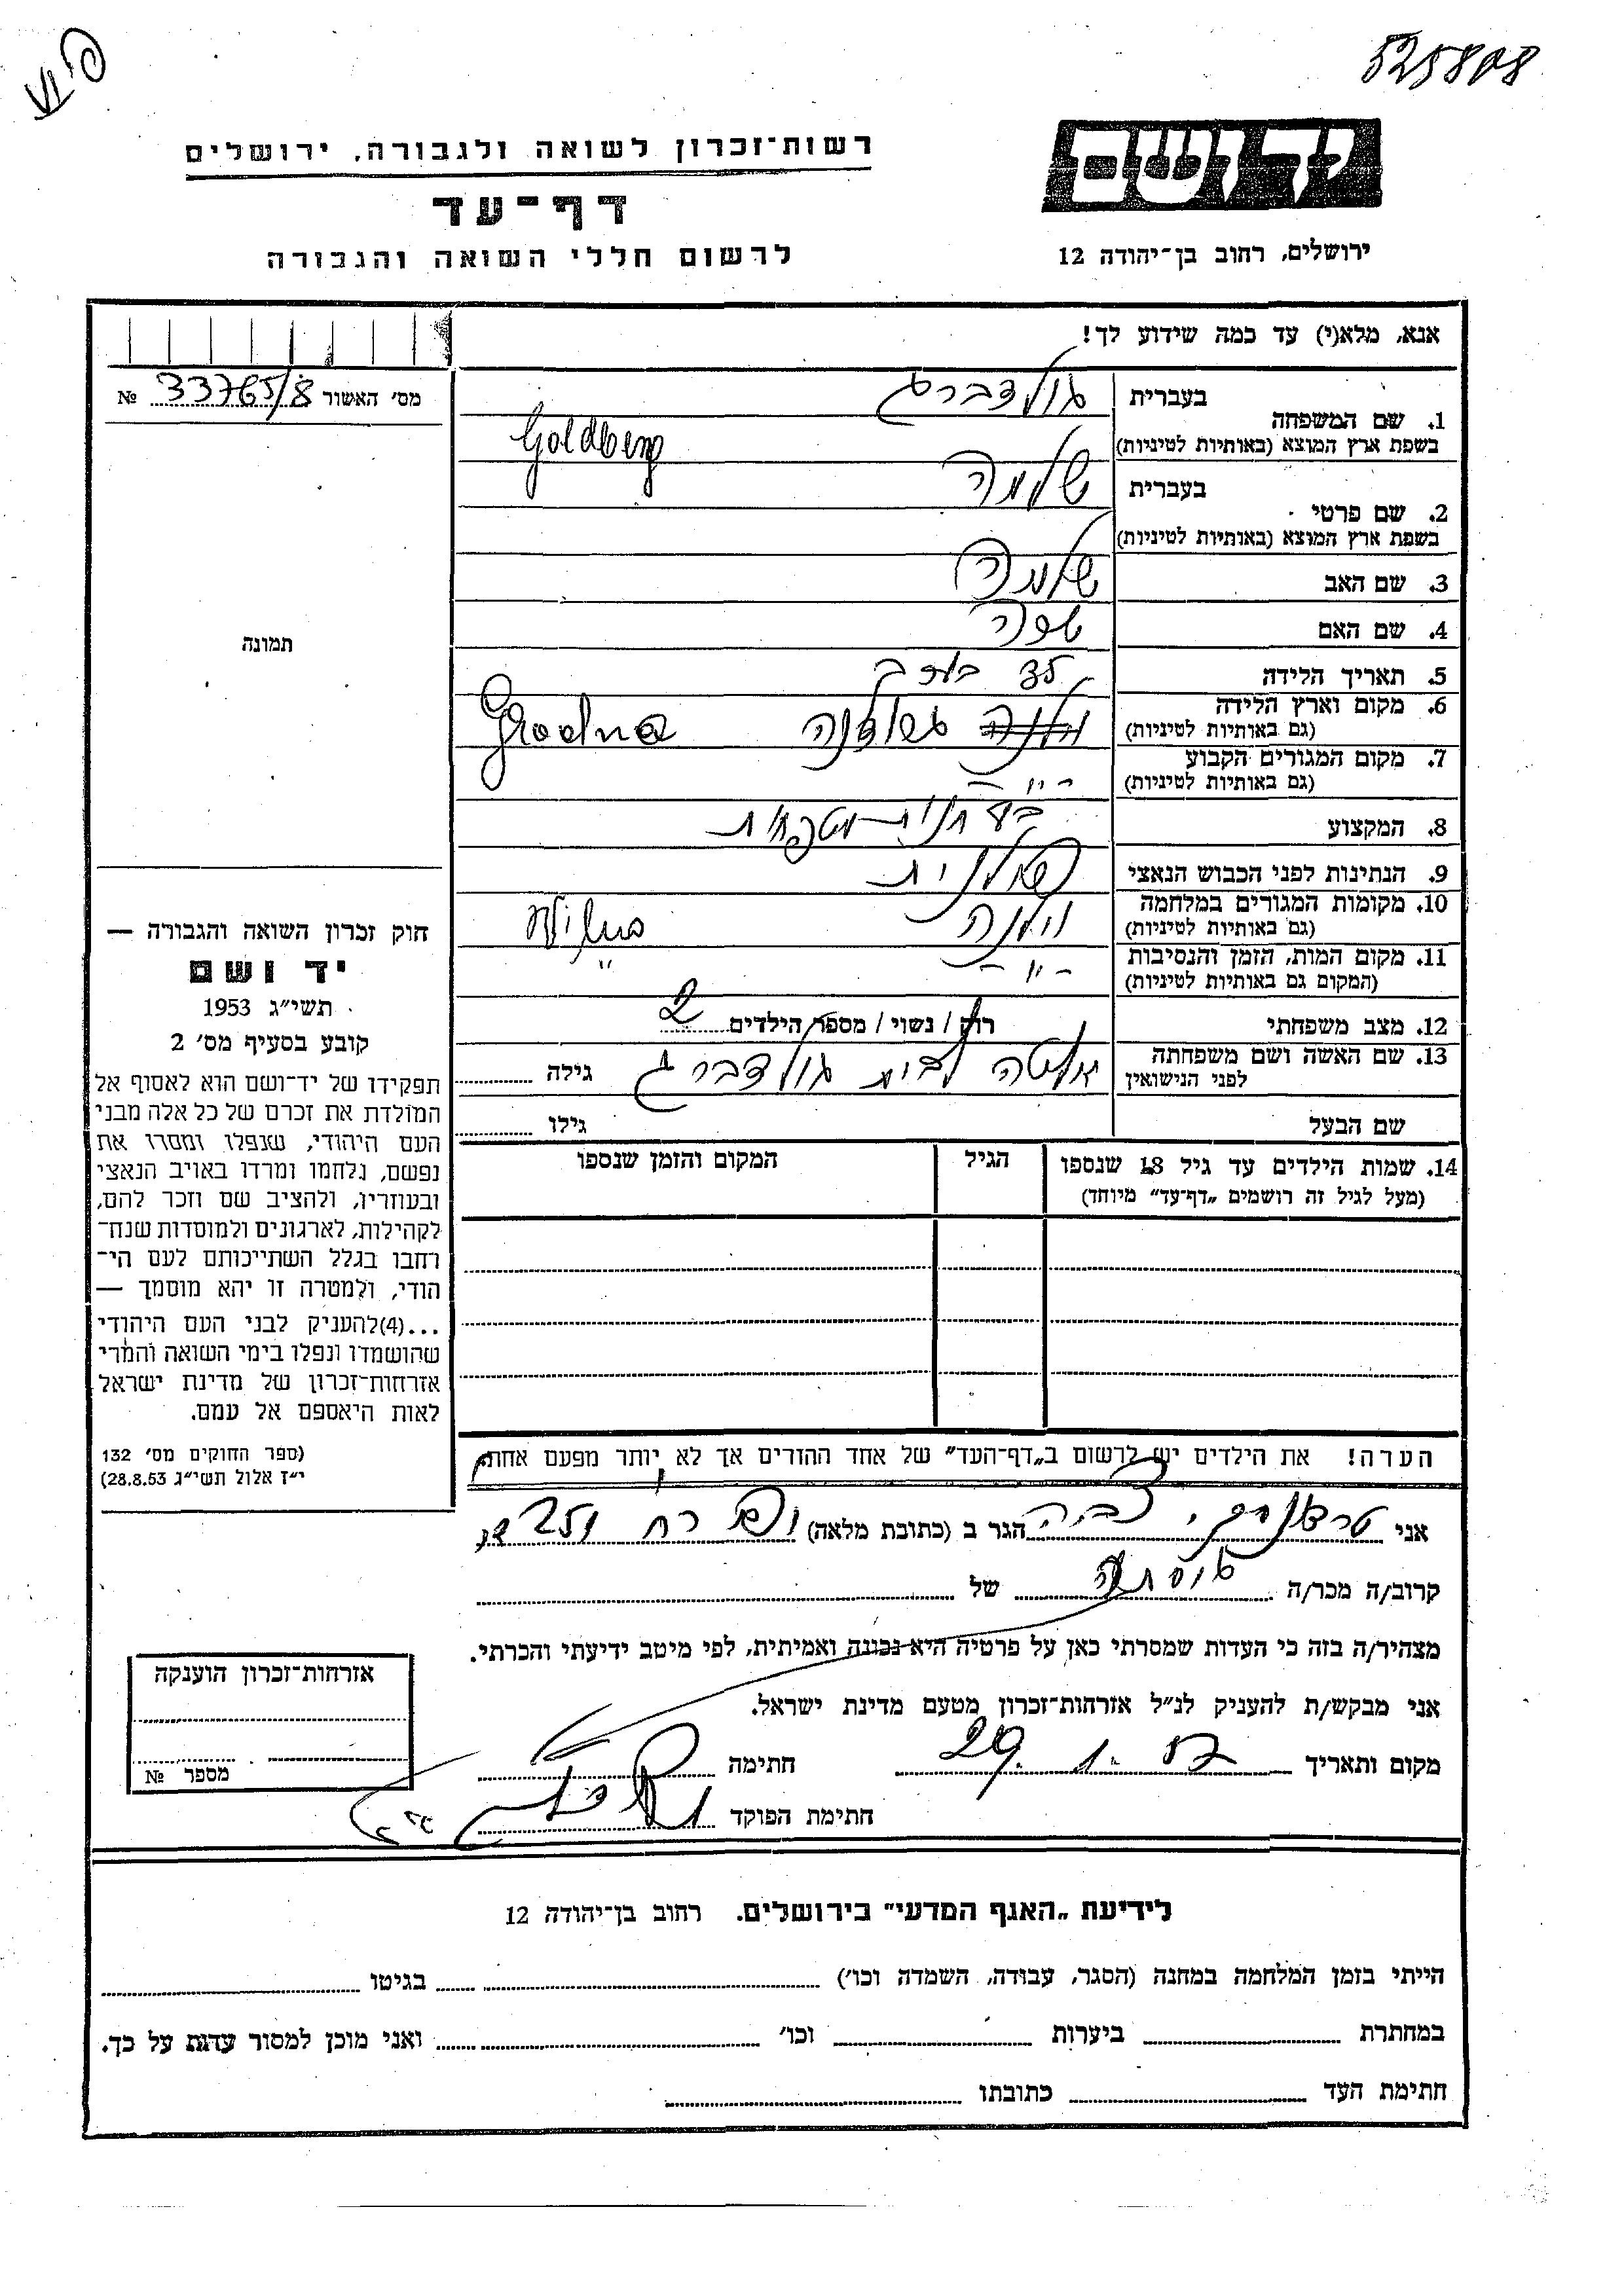 525808
רשות-זכרון לשואה ולגבורה, ירושלים
יד ושם
דף-עד
לרשום חללי השואה והגבורה
ירושלים, רחוב בן-יהודה 12
אנא, מלא(י) עד כמה שידוע לך!
מס׳ האשור № 33765/8
1. שם המשפחה
בעברית גולדברג
בשפת ארץ המוצא (באותיות לטיניות) Goldberg
2. שם פרטי
בעברית שלמה
בשפת ארץ המוצא (באותיות לטיניות)
3. שם האב שלמה
4. שם האם
5. תאריך הלידה
6. מקום וארץ הלידה
(גם באותיות לטיניות) Grodna
7. מקום המגורים הקבוע
(גם באותיות לטיניות) -"-
8. המקצוע
9. הנתינות לפני הכבוש הנאצי פולנית
10. מקומות המגורים במלחמה
(גם באותיות לטיניות) וילנה
11. מקום המות, הזמן והנסיבות
(המקום גם באותיות לטיניות) -"-
12. מצב משפחתי רווק / נשוי / מספר הילדים 2
13. שם האשה ושם משפחתה
לפני הנישואין לבית גולדברג גילה
שם הבעל גילו
14. שמות הילדים עד גיל 18 שנספו
(מעל לגיל זה רושמים „דף-עד״ מיוחד)
הגיל
המקום והזמן שנספו
הערה! את הילדים יש לרשום ב„דף-העד״ של אחד ההורים אך לא יותר מפעם אחת.
תמונה
חוק זכרון השואה והגבורה —
יד ושם
תשי״ג 1953
קובע בסעיף מס׳ 2
תפקידו של יד-ושם הוא לאסוף אל
המולדת את זכרם של כל אלה מבני
העם היהודי, שנפלו ומסרו את
נפשם, נלחמו ומרדו באויב הנאצי
ובעוזריו, ולהציב שם וזכר להם,
לקהילות, לארגונים ולמוסדות שנח-
רחבו בגלל השתייכותם לעם הי-
הודי, ולמטרה זו יהא מוסמך —
...(4)להעניק לבני העם היהודי
שהושמדו ונפלו בימי השואה והמרי
אזרחות-זכרון של מדינת ישראל
לאות היאספם אל עמם.
(ספר החוקים מס׳ 132
י״ז אלול תשי״ג 28.8.53)
אני הגר ב (כתובת מלאה)
קרוב/ה מכר/ה של
מצהיר/ה בזה כי העדות שמסרתי כאן על פרטיה היא נכונה ואמיתית, לפי מיטב ידיעתי והכרתי.
אני מבקש/ת להעניק לנ״ל אזרחות-זכרון מטעם מדינת ישראל.
מקום ותאריך 29.1.57 חתימה
חתימת הפוקד
אזרחות-זכרון הוענקה
מספר №
לידיעת „האגף המדעי״ בירושלים. רחוב בן-יהודה 12
הייתי בזמן המלחמה במחנה (הסגר, עבודה, השמדה וכו׳) בגיטו
במחתרת ביערות וכו׳ ואני מוכן למסור עדות על כך.
חתימת העד כתובתו